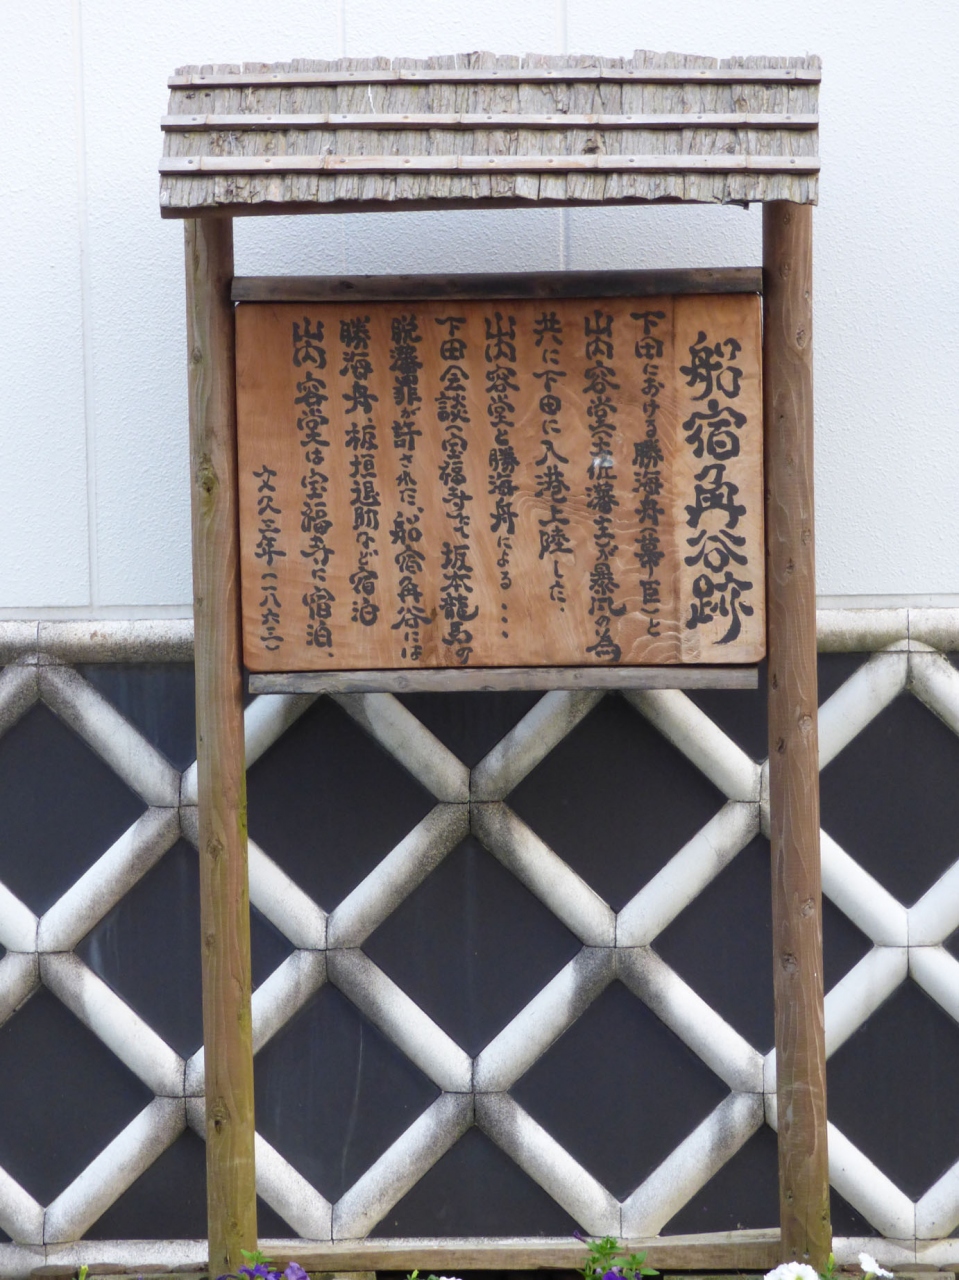 船宿角谷跡
下田における勝海舟(幕臣)と
山内容堂(土佐藩主)が暴風の為
共に下田に入港上陸した。
山内容堂と勝海舟による・・・
下田会談(宝福寺)にて坂本龍馬の
脱藩罪が許された、船宿角谷には
勝海舟、板垣退助など宿泊
山内容堂は宝福寺に宿泊、
文久三年(一八六三)